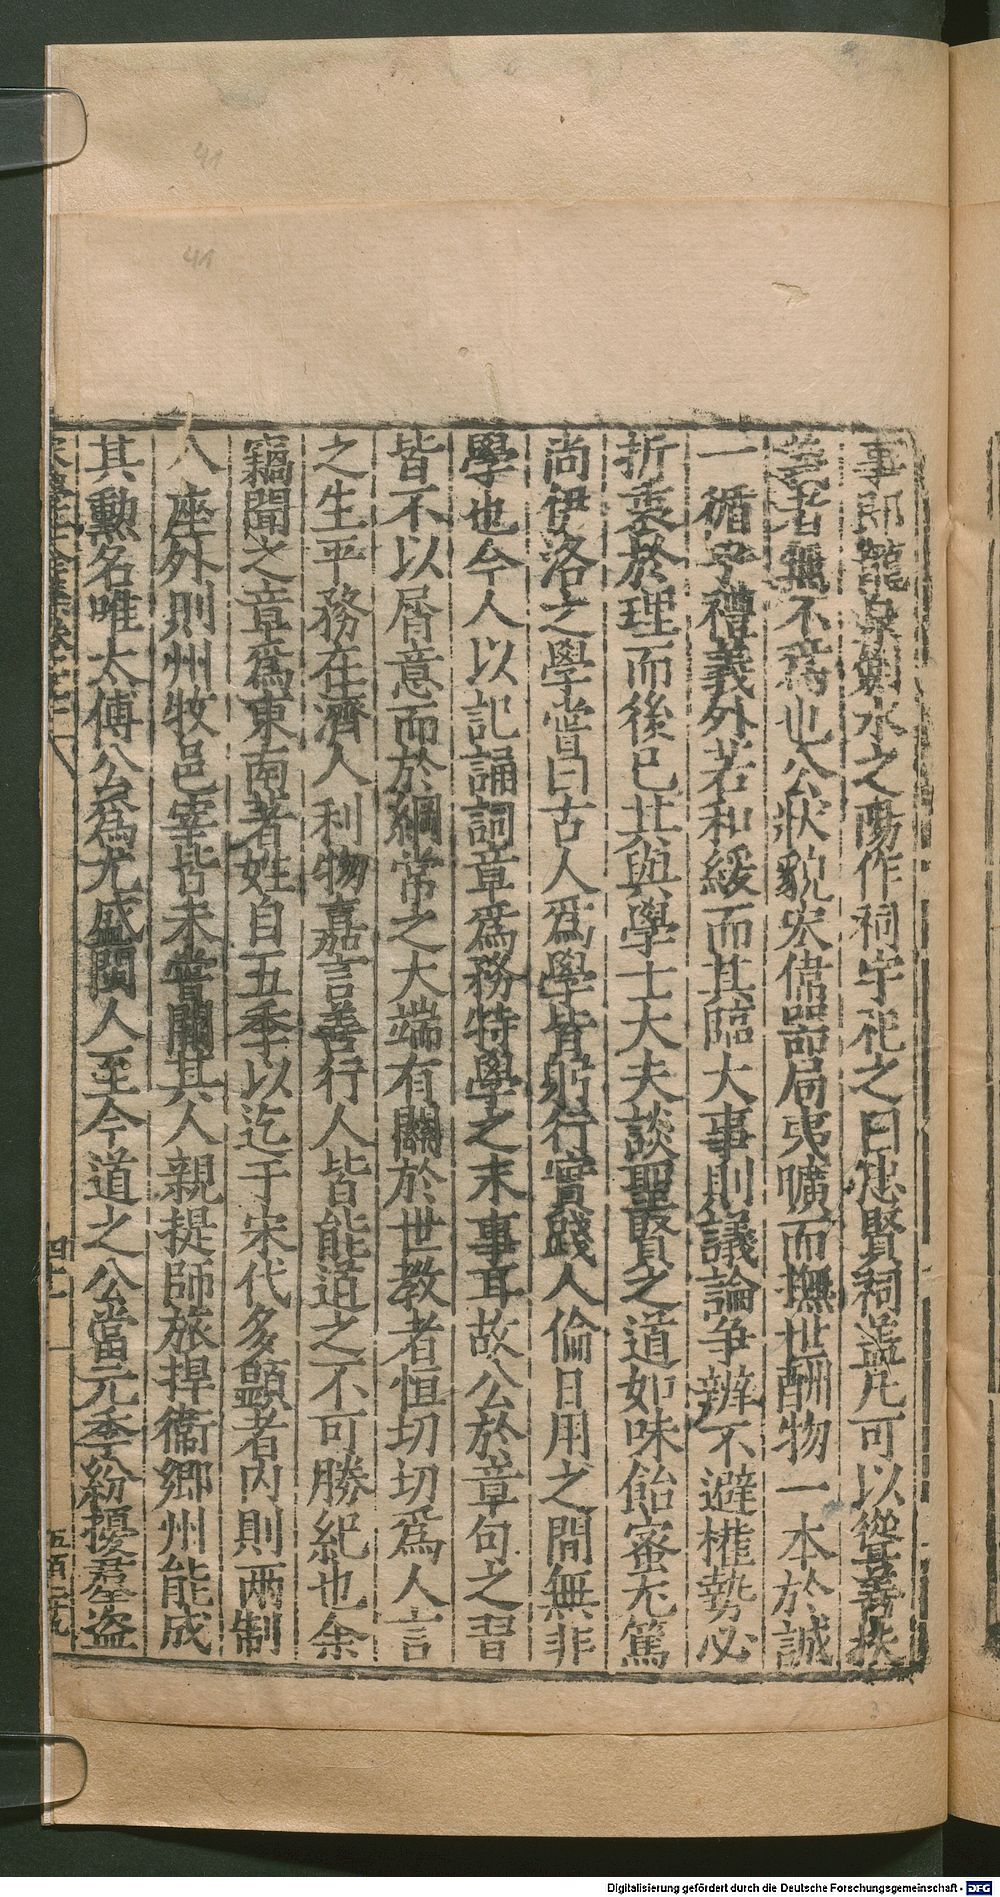 事即龍泉劍水之陽作祠宇祀之曰忠賢祠盖凡可以從善扶
者無不爲也公狀貌宏偉器局夷曠而撫世酬物一本於誠
一循乎禮義外若和緩而其臨大事則議論争辨不避權勢必
折衷於理而後已其與學士大夫談聖賢之道如味飴蜜尢篤
尚伊洛之學嘗曰古人爲學皆躬行實踐人倫日用之間無非
學也今人以記誦詞章爲務特學之末事耳故公於章句之習
皆不以屑意而於綱常之大端有關於世教者恒切切爲人言
之生平務在濟人利物嘉言善行人皆能道之不可勝紀也余
竊聞之章爲東南著姓自五季以迄于宋代多顯者内則两制
八座外則州牧邑宰皆未嘗闕其人親提師旅捍衞鄉州能成
其勳名唯太傅公爲尤盛閩人至今道之公當元季紛擾羣盜
宋學士全集卷之十八
四十一
五百二九
41
41
Digitalisierung gefördert durch die Deutsche Forschungsgemeinschaft - DFG